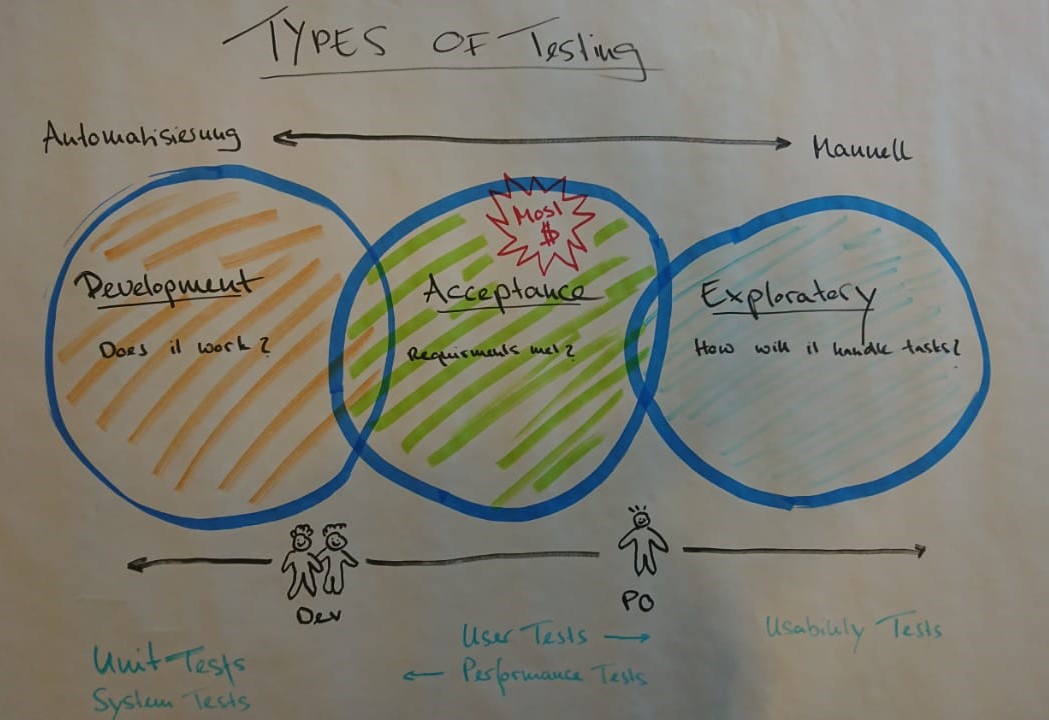 TYPES OF Testing
Automatisierung
Manuell
Most
$
Development
Does it work?
Acceptance
Requirments met?
Exploratory
How will it handle tasks?
Dev
PO
Unit Tests
System Tests
User Tests →
← Performance Tests
Usability Tests